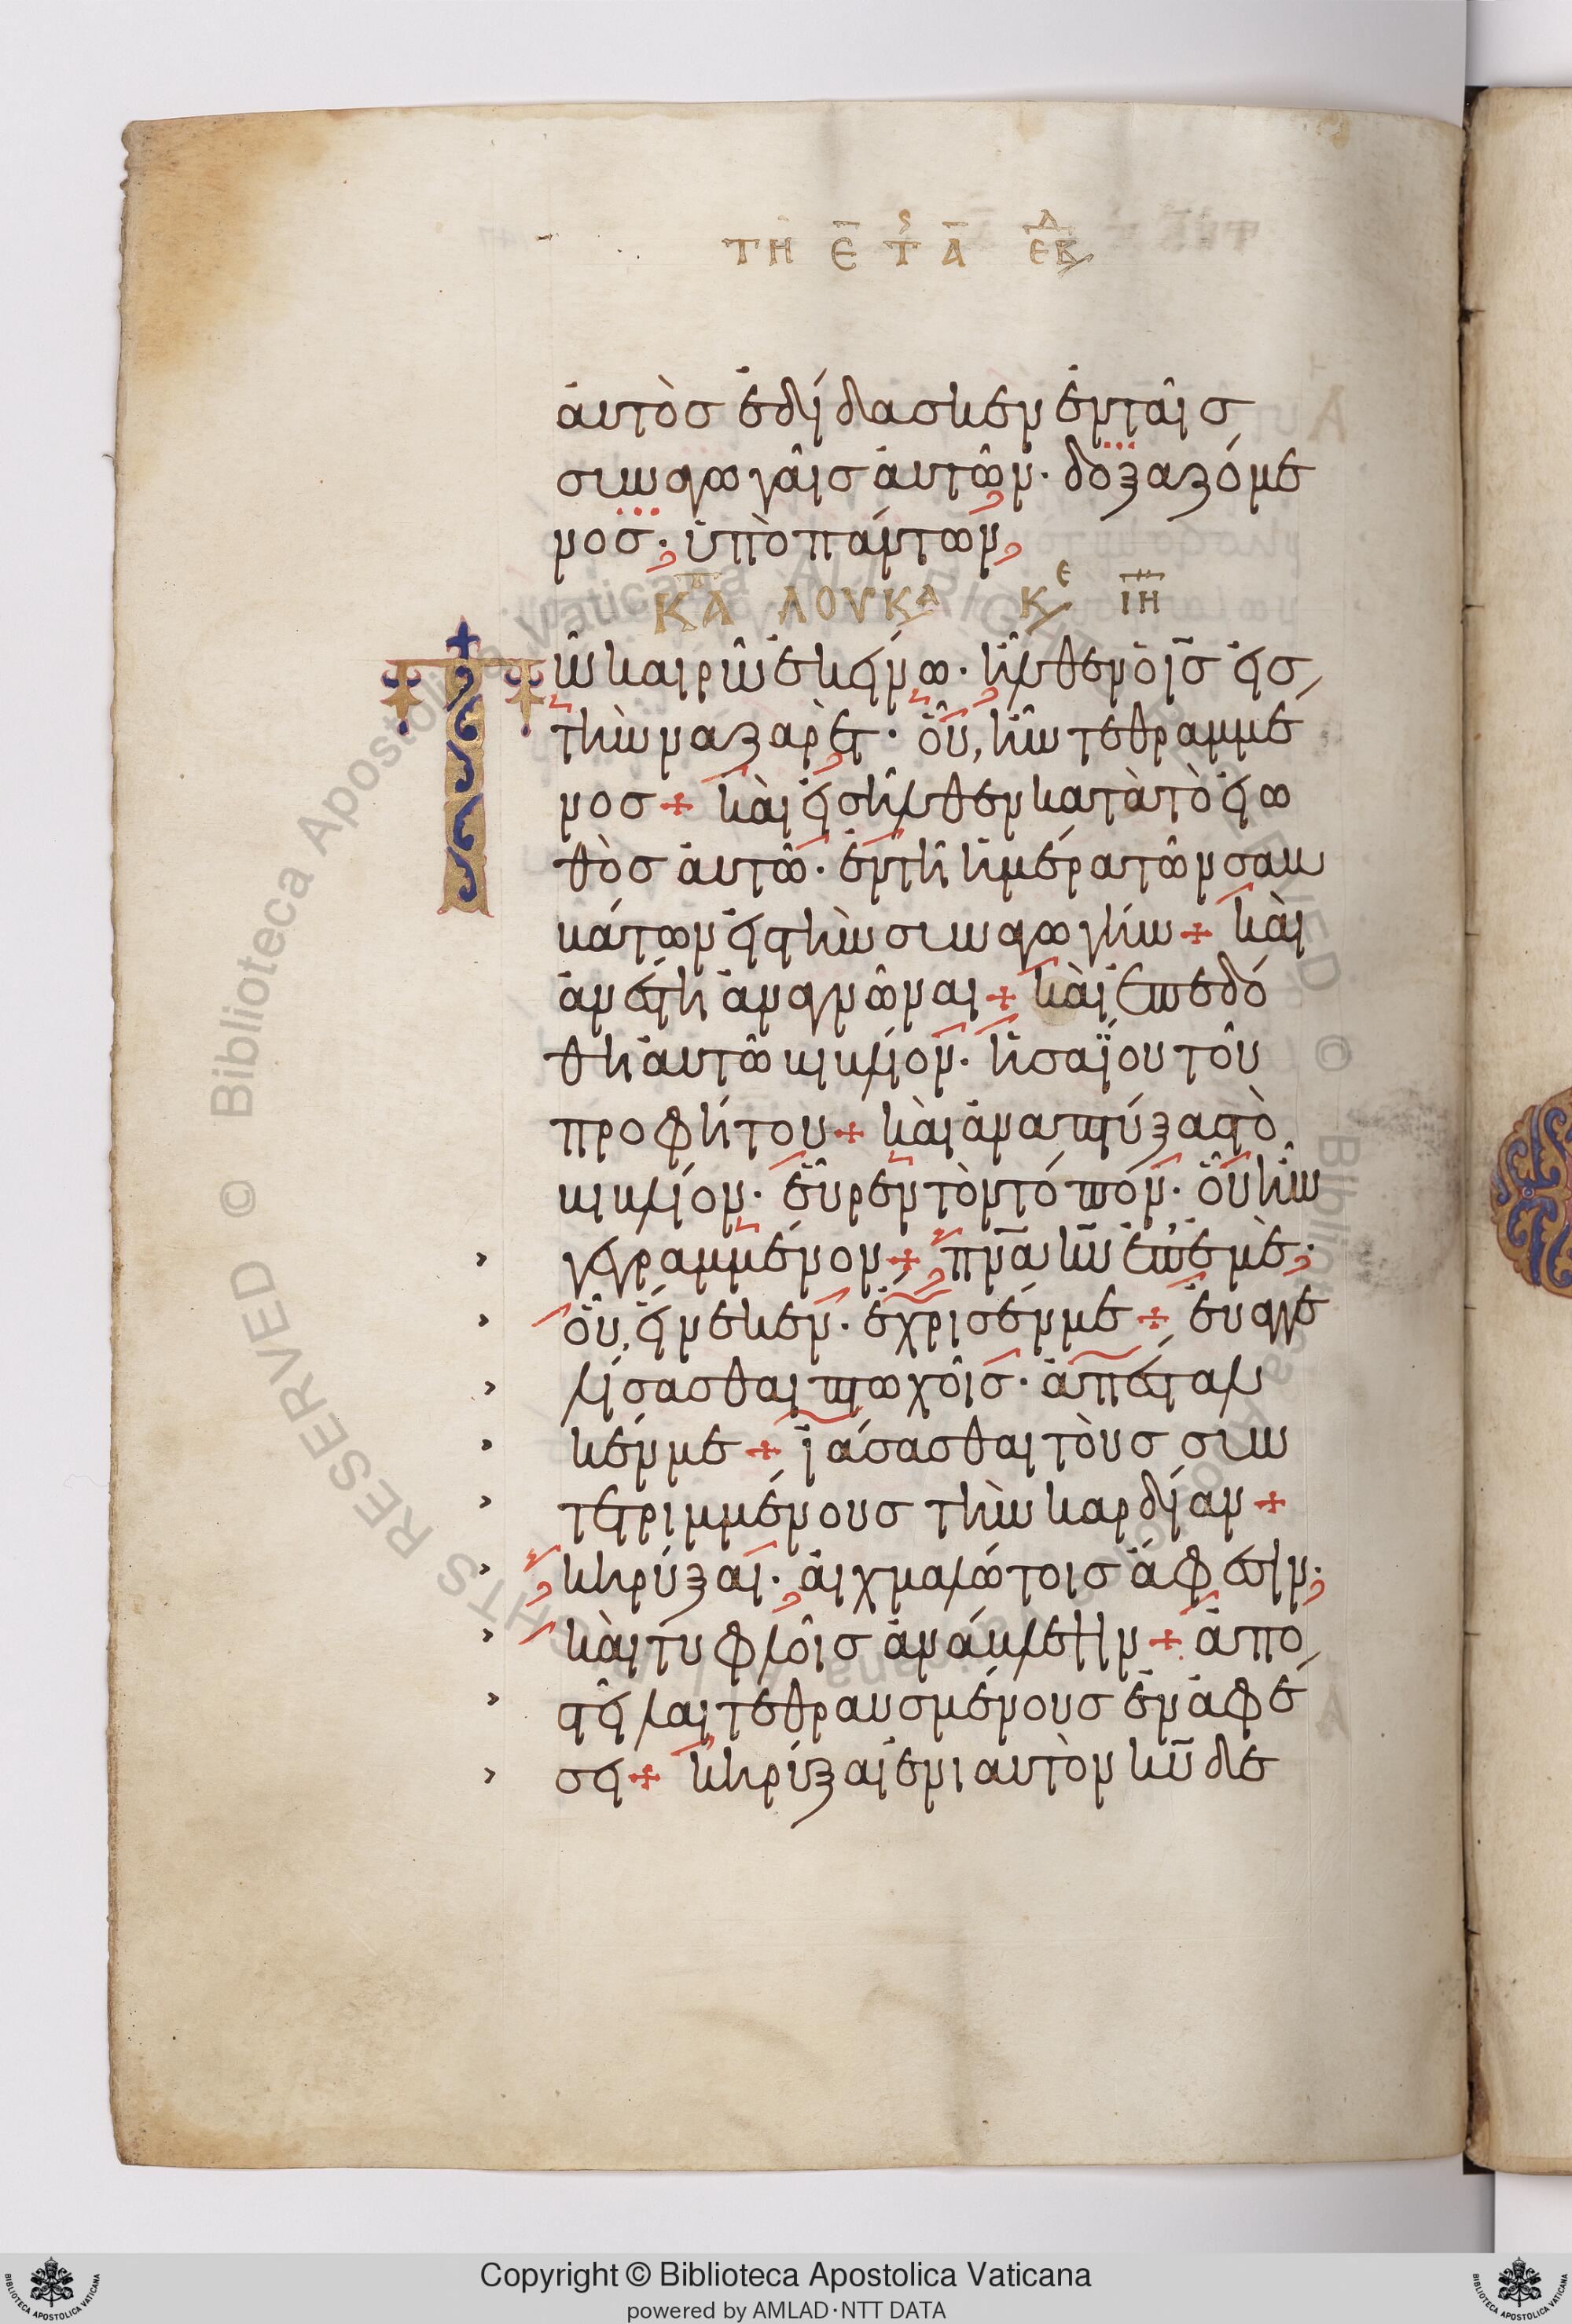 ΤΗ Ε ΤΣ Α ΕΒΔ
ἀυτὸσ ἐδίδασκεν ἐνταῖσ
συναγωγαῖσ ἀυτῶν· δοξαζόμε
νοσ· ὑπὸ πάντων,
ΚΑΤΑ ΛΟΥΚΑ ΚΕ ΙΗ
Τῶ καιρῶ ἐκείνω· ἦλθεν ὁ ισ εἰσ
τὴν ναζαρὲτ· οὗ, ἦν τεθραμμέ
νοσ + καὶ εἰσῆλθεν κατὰ τὸ εἰω
θὸσ ἀυτῶ· ἐν τῆ ἡμέρα τῶν σαβ
βάτων εἰς τὴν συναγωγήν + καὶ
ἀνέστη ἀναγνῶναι + καὶ ἐπεδό
θη ἀυτῶ βιβλίον· ἡσαΐου τοῦ
προφήτου + καὶ ἀναπτύξας τὸ
βιβλίον· εὗρεν τὸν τόπον· οὗ ἦν
γεγραμμένον + πνα κυ ἐπ' ἐμὲ·
οὗ, εἵνεκεν· ἔχρισέν με + ἐυαγγε
λίσασθαι πτωχοῖσ· ἀπέσταλ
κέν με + ἰάσασθαι τοὺσ συν
τετριμμένουσ τὴν καρδίαν +
κηρύξαι· ἀιχμαλώτοισ ἄφεσιν·
καὶ τυφλοῖσ ἀνάβλεψιν + ἀπο
στεῖλαι τεθραυσμένουσ ἐν ἀφέ
σει + κηρύξαι ἐνιαυτὸν κυ δε
Copyright © Biblioteca Apostolica Vaticana
powered by AMLAD·NTT DATA